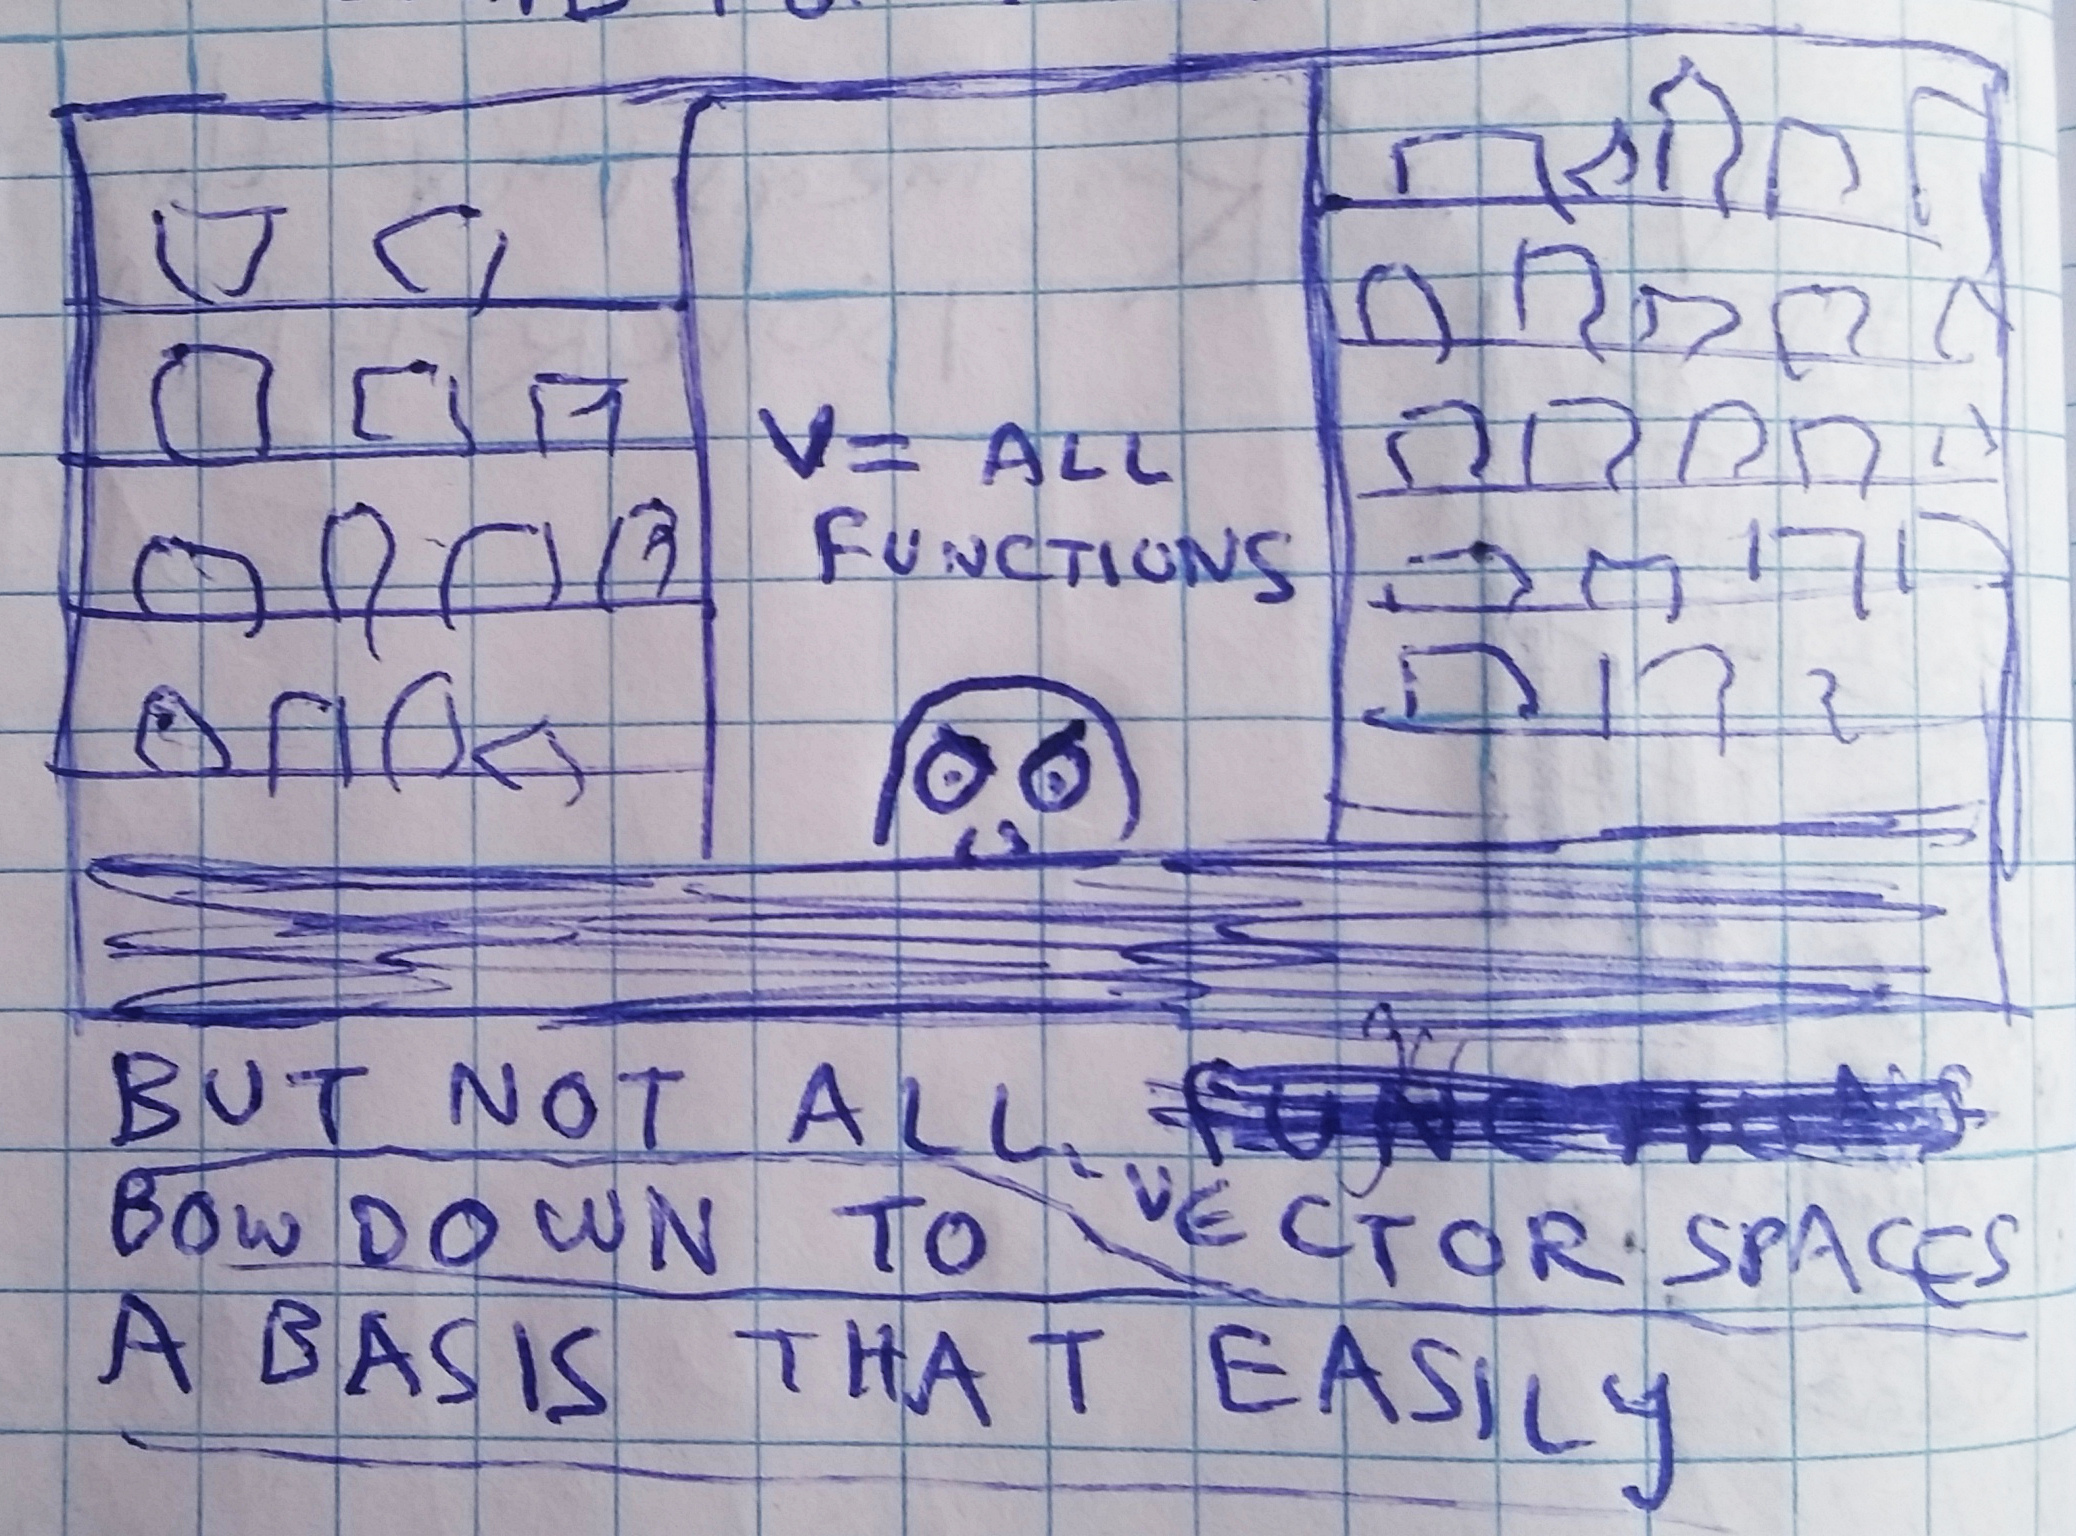 V = ALL
FUNCTIONS
BUT NOT ALL
VECTOR SPACES
BOW DOWN TO
A BASIS THAT EASILY